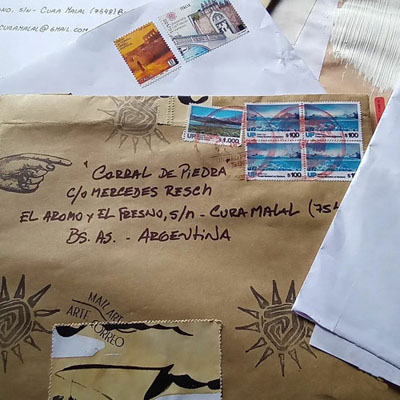 NO, S/N - CURA MALAL (7548) B
CURAMALAL@GMAIL.COM
ITALIA
UP $1.000
UP $100
UP $100
UP $100
UP $100
CORRAL DE PIEDRA
C/O MERCEDES RESCH
EL AROMO Y EL FRESNO, S/N - CURA MALAL (754
BS. AS. - ARGENTINA
MAIL ART
ARTE CORREO